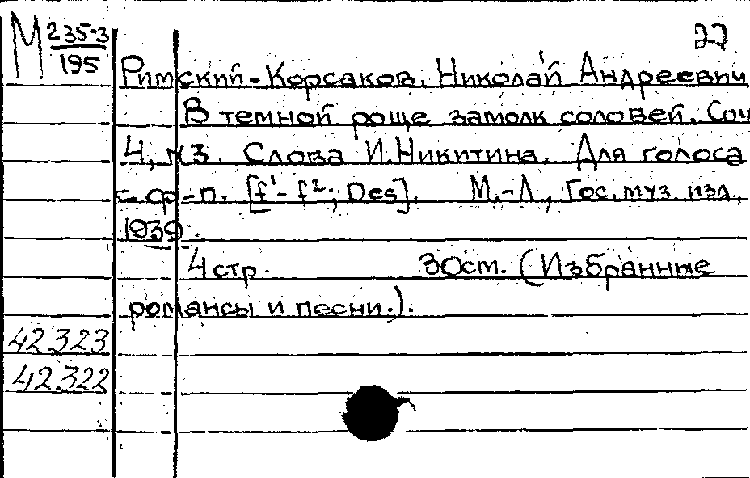 М 235-3
195
22
Римский-Корсаков, Николай Андреевич
В темной роще замолк соловей. Соч
4, №3. Слова И.Никитина. Для голоса
с ф-п. [f¹-f²; Des]. М.-Л., Гос. муз. изд.,
1939.
4 стр. 30см. (Избранные
романсы и песни.).
42323
42322